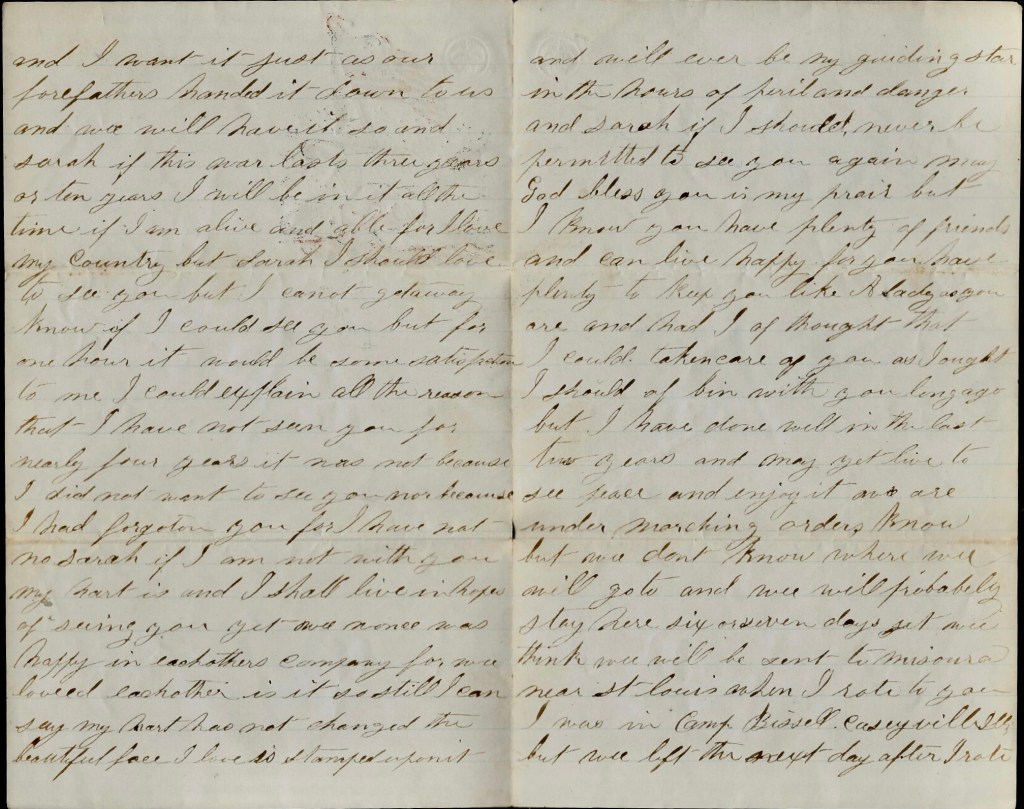 and I want it just as our
forefathers handed it down to us
and wee will have it so and
sarah if this war lasts three years
or ten years I will be in it all the
time if I am alive and able for I love
my Country but sarah I should love
to see you but I canot getaway
know if I could see you but for
one hour it would be some satisfaction
to me I could explain all the reason
that I have not seen you for
nearly four years it was not because
I did not want to see you nor because
I had forgoton you for I have not
no sarah if I am not with you
my hart is and I shall live in hopes
of seeing you yet wee wonce was
happy in eachothers company for wee
loved eachother is it so still I can
say my hart has not changed the
beautiful face I love is stamped upon it
and will ever be my guiding star
in the hours of peril and danger
and sarah if I should never be
permitted to see you again may
God bless you is my prair but
I know you have plenty of friends
and can live happy for you have
plenty to keep you like A lady as you
are and had I of thought that
I could taken care of you as I ought
I should of bin with you long ago
but I have done well in the last
two years and may yet live to
see peace and enjoy it wee are
under marching orders know
but wee dont know where wee
will goto and wee will probabely
stay here six or seven days yet wee
think wee will be sent to misoura
near st louis when I rote to you
I was in Camp Bissell Caseyville Ills
but wee left the next day after I rote